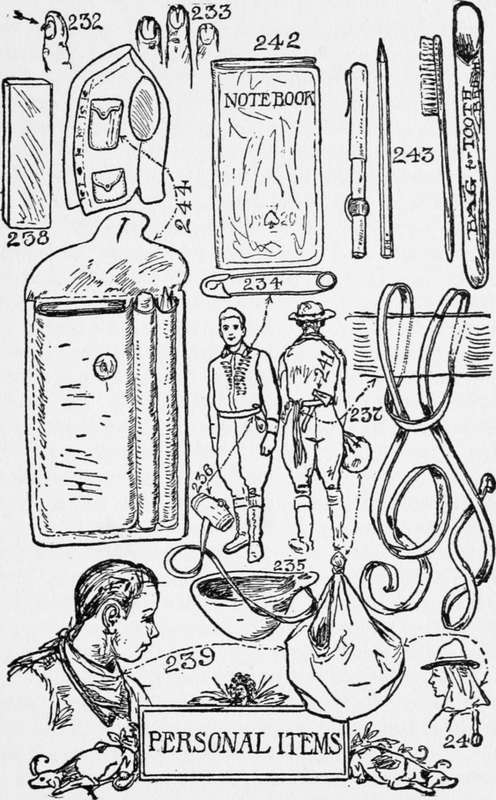 232
233
242
NOTEBOOK
1920
243
BAG for TOOTH BRUSH
238
244
234
241
237
236
235
239
240
PERSONAL ITEMS